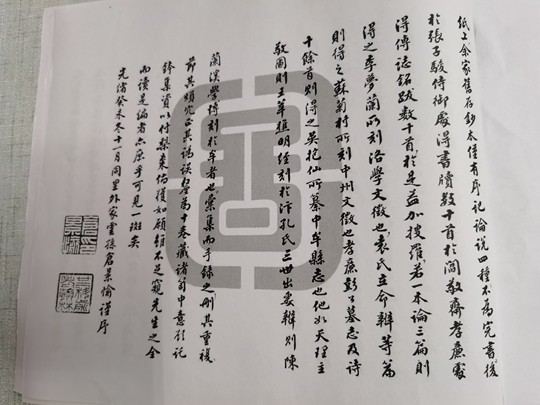 紙上余家舊存鈔本僅有序記論說四種不為完書後
於張子駿侍御處得書牘數十首於閻敬齋孝廉處
得傳誌銘跋數十首於是益加搜羅若一本論三篇則
得之李夢蘭所刻洛學文徵也袁氏立命辯等篇
則得之蘇菊村所刻中州文徵也孝廉彭了墓志及詩
十餘首則得之吳抱仙所纂中牟縣志也他如天理主
敬圖則王筆樵明經刻於汴孔氏三世出妻辯則陳
蘭溪學博刻於牟者也彙集而手錄之刪其重複
節其煩冗正其訛誤釐為十卷藏諸笥中意欲記
鈴集資以付棃棗佑復如願雖不足窺先生之全
而讀是編者亦庶乎可見一斑矣
光緒癸未冬十一月同里外家雲孫倉景愉謹序